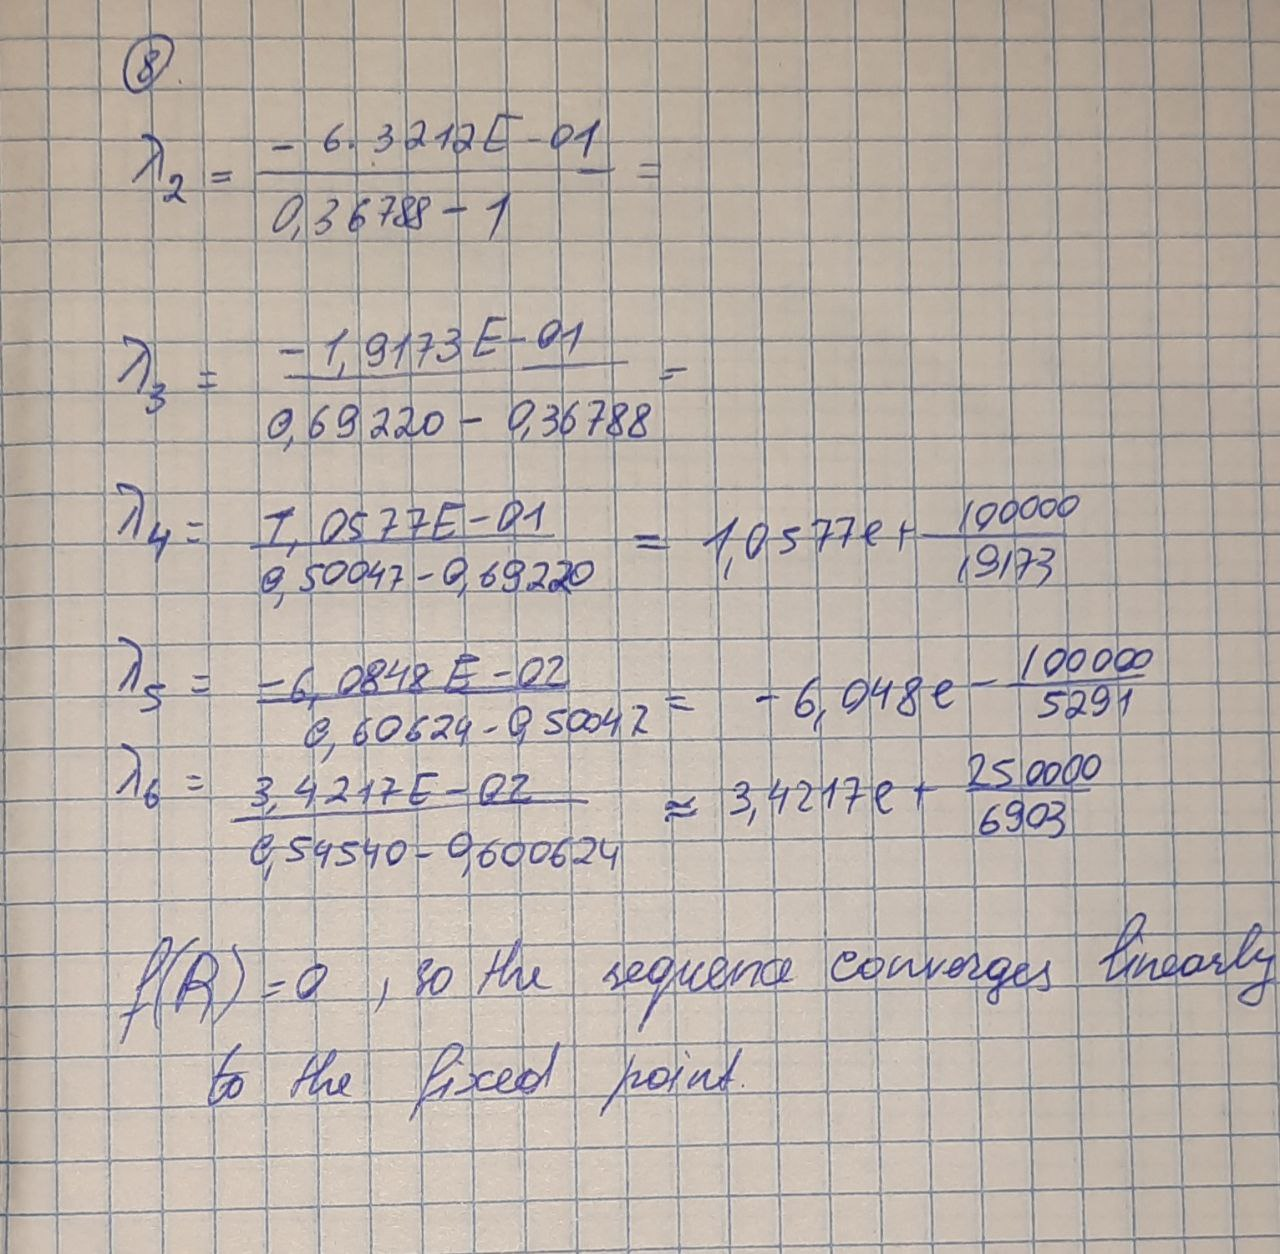 8.
λ2 = (- 6.3212E-01) / (0,36788 - 1) =
λ3 = (-1,9173E-01) / (0,69220 - 0,36788) =
λ4 = (1,0577E-01) / (0,50047 - 0,69220) = 1,0577e + 100000/19173
λ5 = (-6,0848E-02) / (0,60624 - 0,50047) = -6,048e - 100000/5291
λ6 = (3,4217E-02) / (0,54540 - 0,600624) ≈ 3,4217e + 250000/6903
f(R) = 0, so the sequence converges linearly
to the fixed point.